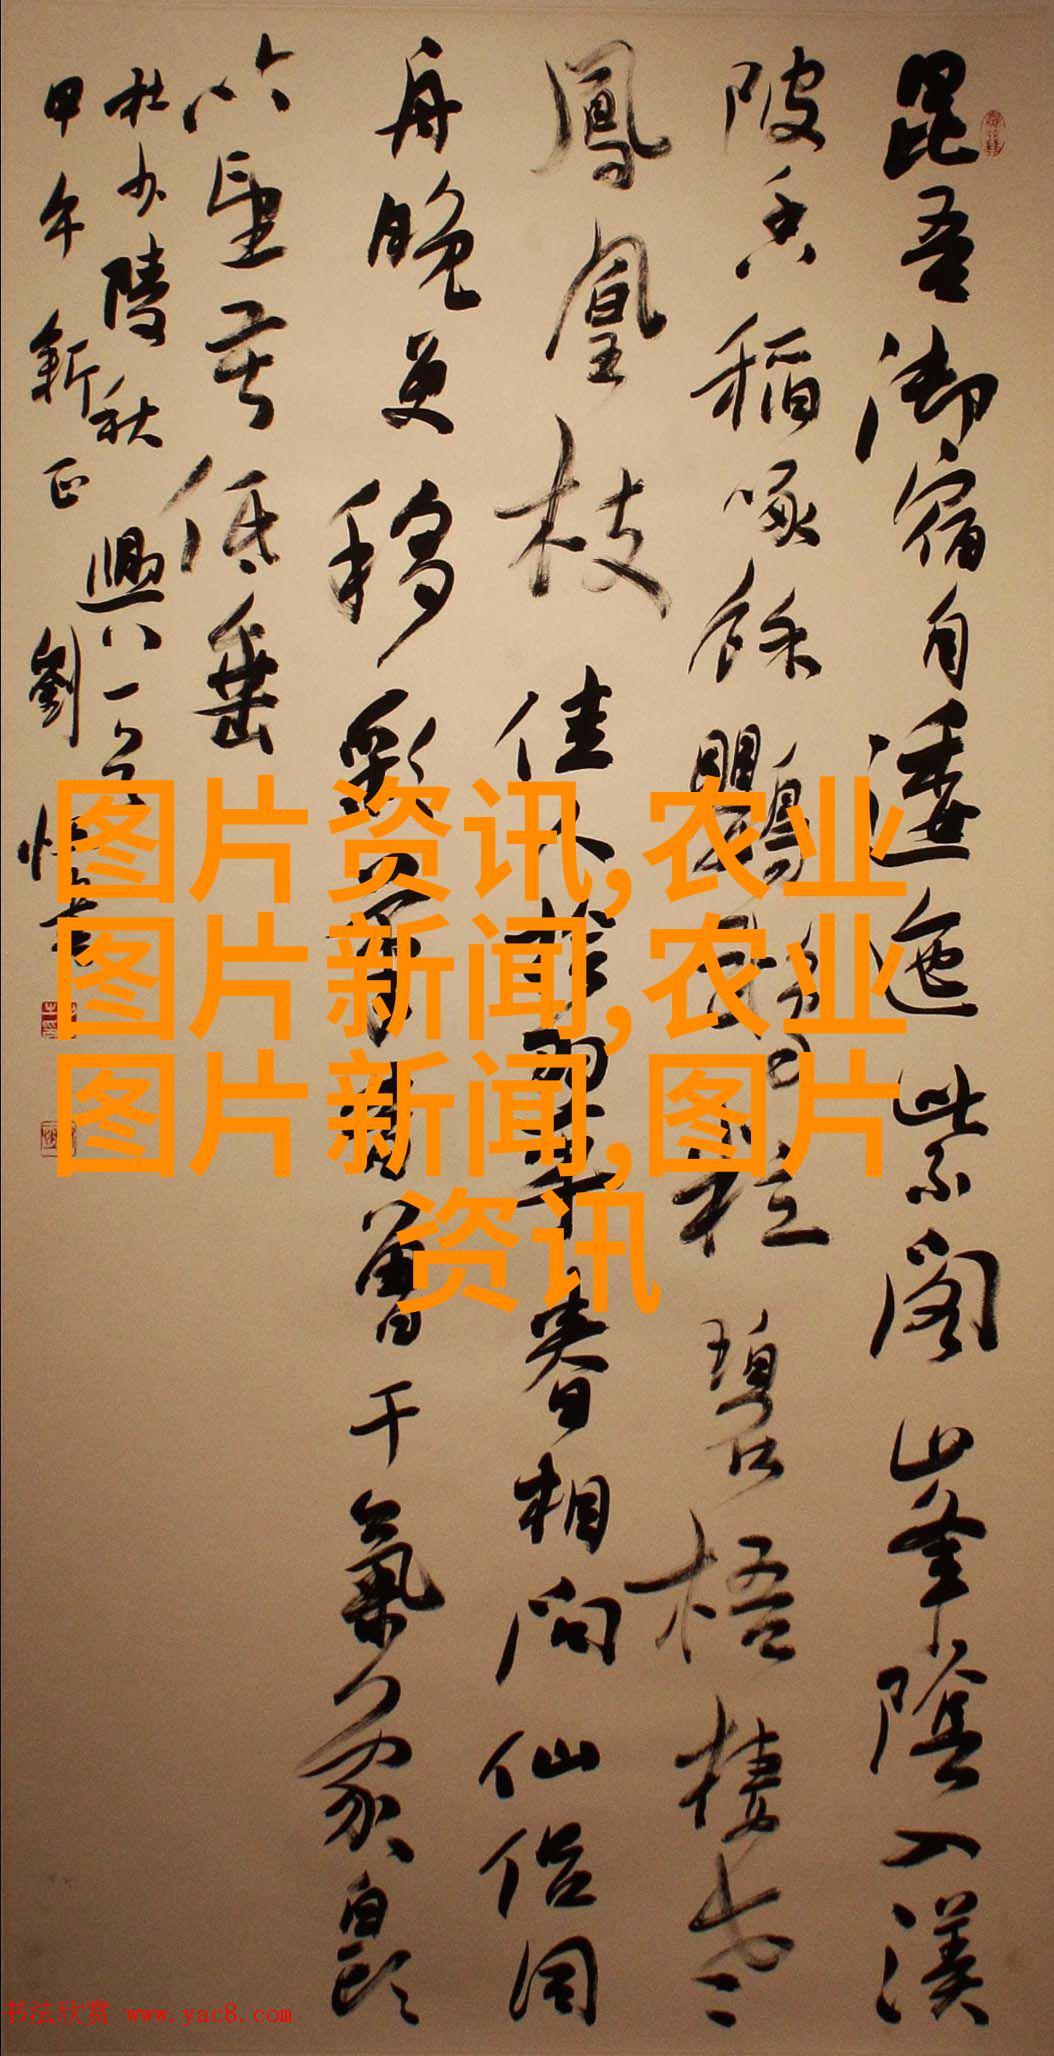 昆吾御宿自逶迤紫閣山峯陰入渼
陂香稻啄餘鸚鵡粒碧梧棲老
鳳凰枝佳人拾翠春相問仙侶同
舟晚更移彩筆昔曾干氣象白頭
吟望苦低垂
杜少陵秋興八一
甲午新正劉
图片资讯,农业
图片新闻,农业
图片新闻,图片
资讯
书法欣赏 www.yac8.com